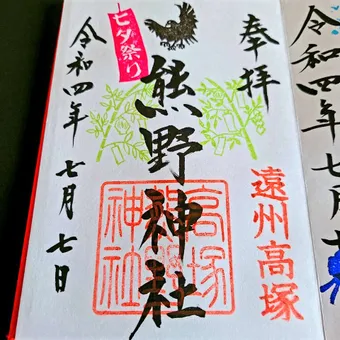 奉拝
遠州高塚
熊野神社
高塚
神社
七夕祭り
令和四年
七月七日
令和四年七月